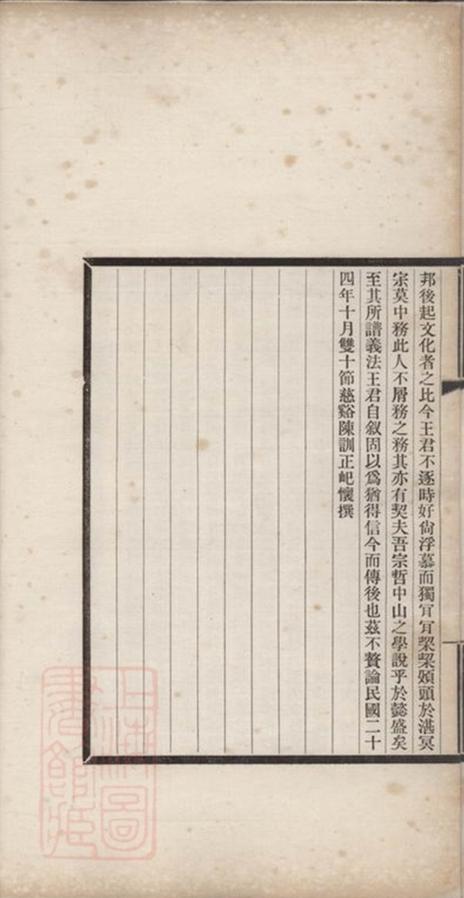 邦後起文化者之比今王君不逐時好尙浮慕而獨冥頭於湛冥
宗莫中務此人不屑務之務其亦有契夫吾宗哲中山之學說乎於懿盛矣
至其所譜義法王君自叙固以爲猶得信今而傳後也茲不贅論民國二十
四年十月雙十節慈谿陳訓正屺懷撰
上海圖書館藏